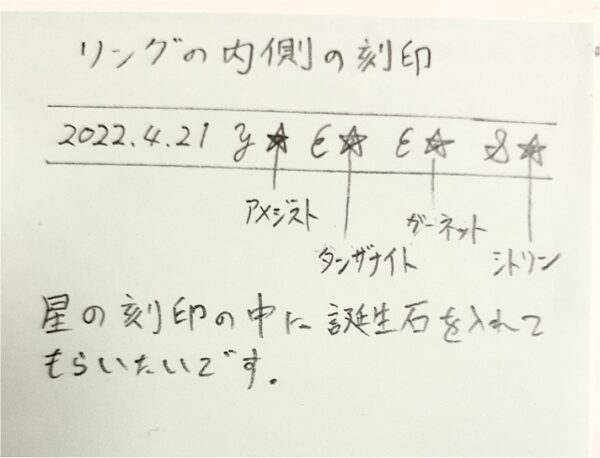 リングの内側の刻印
2022.4.21 y★ E★ E★ S★
アメジスト
ガーネット
タンザナイト
シトリン
星の刻印の中に誕生石を入れて
もらいたいです.